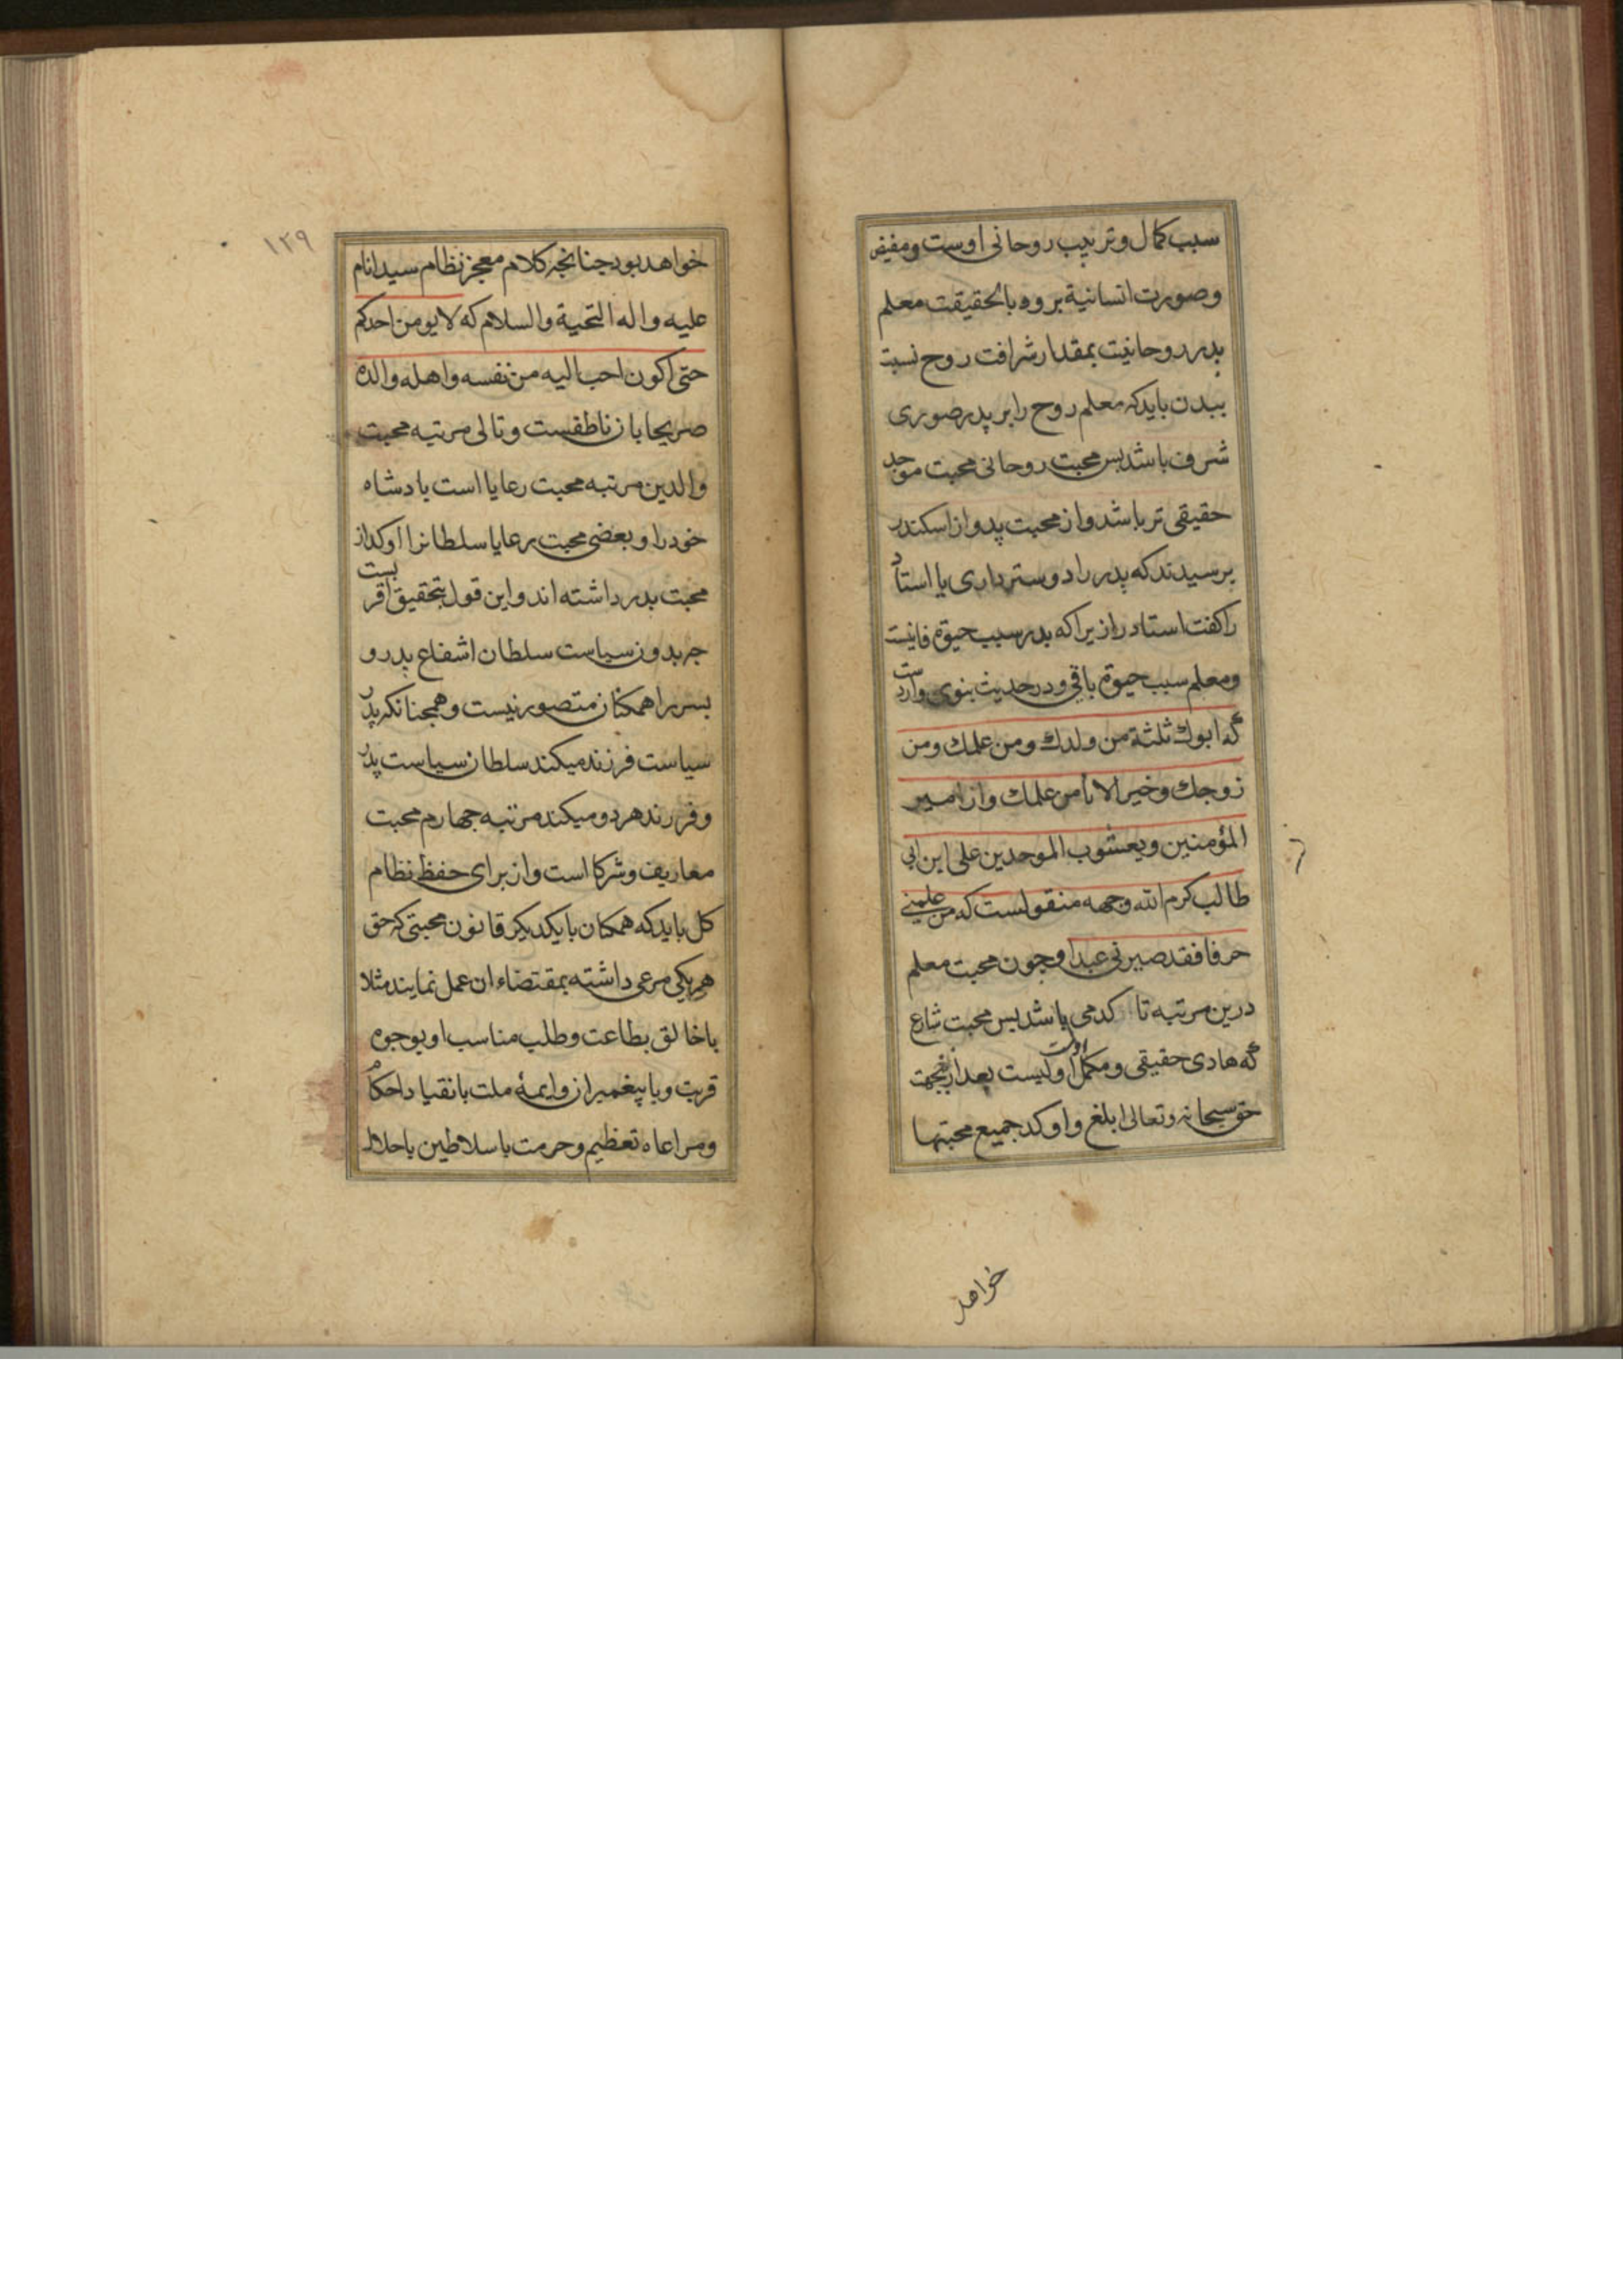 سبب کمال و تربیب روحانی اوست و مفیض
و صورت انسانیة بروه بالحقیقت معلم
پدر روحانیت بمقدار شرافت روح نسبت
ببدن باید که معلم روح را بر پدر صوری
شرف باشد بس محبت روحانی محبت موجد
حقیقی تر باشد و از محبت پدر و از اسکندر
برسیدند که پدر را دوستر داری یا استاد
را کفت استاد را زیرا که پدر سبب حیوة فانیست
و معلم سبب حیوة باقی و در حدیث نبوی واردست
که ابوك ثلثة من ولدك ومن علمك ومن
زوجك وخیر الاباٰ من علمك و از امیر
المؤمنین و یعسوب الموحدین علی ابن ابی
طالب کرم الله وجهه منقولست که من علمنی
حرفا فقد صیرنی عبدا و جون محبت معلم
درین مرتبه تا کدمی باشد بس محبت شارع
که هادی حقیقی و مکمل اولیست بعد از محبت
حق سبحانه و تعالی ابلغ و اوکد جمیع محبتها
خواهد
۱۲۹
خواهد بود جنانجه کلام معجز نظام سید انام
علیه و اله التحیة والسلام که لا یومن احدکم
حتی اکون احب الیه من نفسه واهله والده
صریحا بان ناطقست و تالی مرتبه محبت
والدین مرتبه محبت رعایا است بادشاه
خود را و بعضی محبت رعایا سلطانرا اوکد از
محبت بدر داشته اند و این قول بتحقیق اقربست
جه بدون سیاست سلطان اشفاع بدر و
بسر را همکنان متصور نیست و همجنانکه پدر
سیاست فرزند میکند سلطان سیاست پدر
و فرزند هر دو میکند مرتبه جهارم محبت
معاریف و شرکا است و از برای حفظ نظام
کل باید که همکنان با یکدیکر قانون محبتی که حق
هر یکی مرعی داشته بمقتضاء ان عمل نمایند مثلا
با خالق بطاعت و طلب مناسب او بوجوه
قربت و با پیغمبران و ایمهٔ ملت بانقیاد احکام
و مراعاه تعظیم و حرمت با سلاطین باجلال